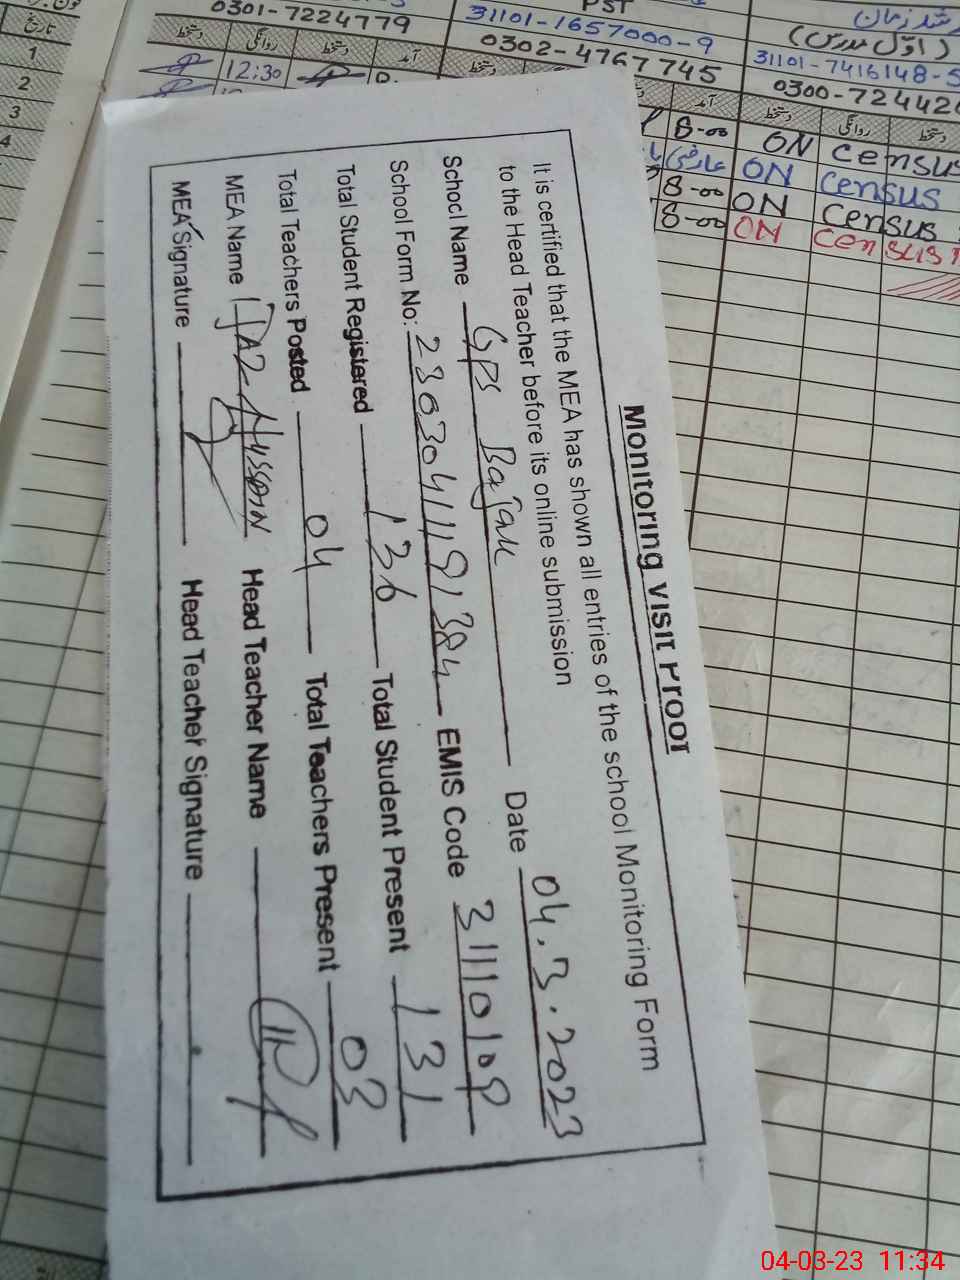 0301-7224779
PST
31101-1657000-9
0302-4767745
رشد زمان
(اوّل مدرس)
31101-7416148-5
0300-724426
تاریخ
دستخط
روانگی
دستخط
آمد
دستخط
آمد
دستخط
روانگی
دستخط
1
2
3
4
12:30
8-00 ON census
عارضی ON census
8-00 ON census
8-00 ON census
Monitoring Visit Proof
It is certified that the MEA has shown all entries of the school Monitoring Form
to the Head Teacher before its online submission
School Name GPS Date 04.3.2023
School Form No: EMIS Code 31110109
Total Student Registered 136 Total Student Present 131
Total Teachers Posted 04 Total Teachers Present 03
MEA Name Head Teacher Name
MEA Signature Head Teacher Signature
04-03-23 11:34